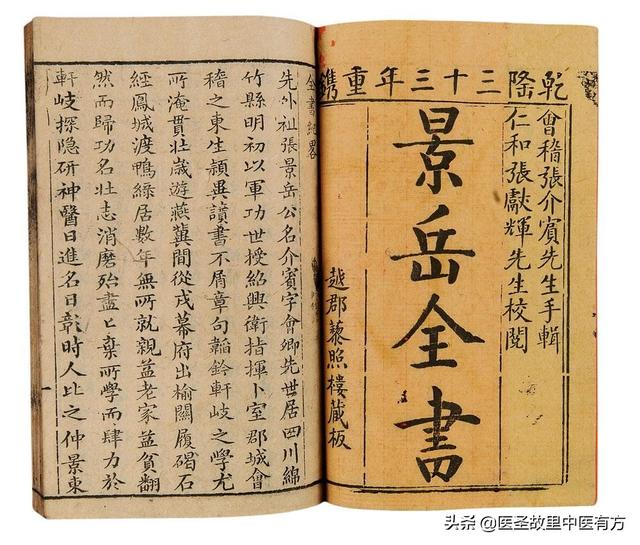 乾隆三十三年重鐫
會稽張介賓先生手輯
仁和張獻輝先生校閱
景岳全書
越郡藜照樓藏板
全書紀畧
先外祖張景岳公名介賓字會卿先世居四川綿
竹縣明初以軍功世授紹興衛指揮卜室郡城會
稽之東生頴異讀書不屑章句韜鈐軒岐之學尤
所淹貫壯歲遊燕冀間從戎幕府出榆關履碣石
經鳳城渡鴨綠居數年無所就親益老家益貧翻
然而歸功名壯志消磨殆盡匕棄所學而肆力於
軒岐探隱研神醫日進名日彰時人比之仲景東
头条 @医圣故里中医有方